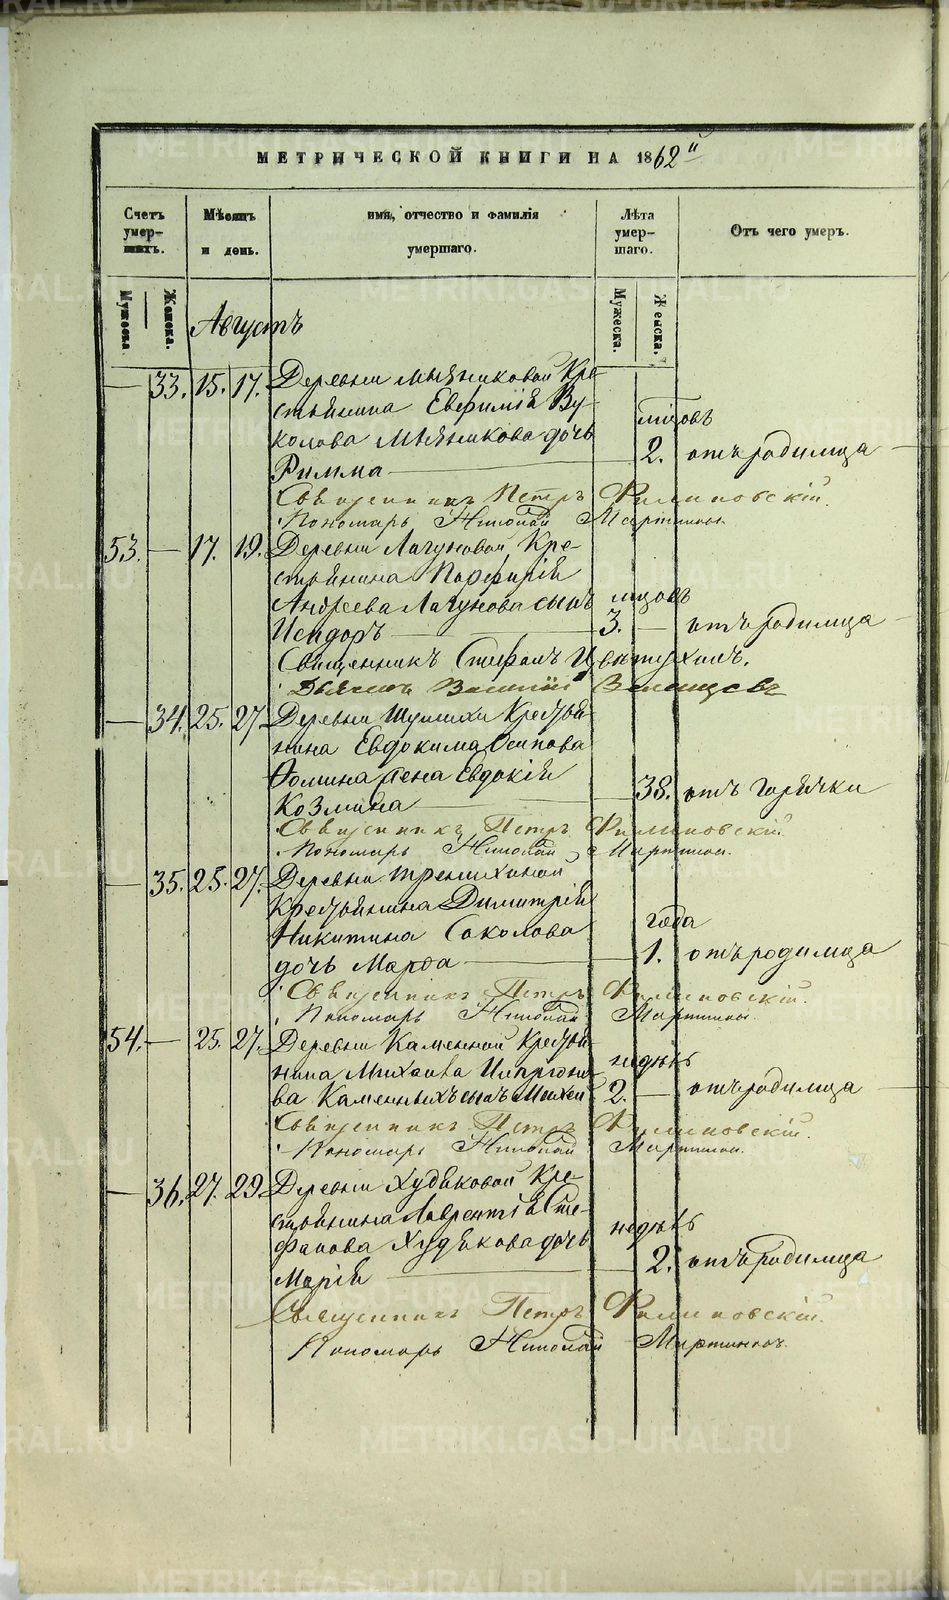 МЕТРИЧЕСКОЙ КНИГИ НА 1862й
Счетъ умер-шихъ.
Мѣсяцъ и день.
имя, отчество и фамилія умершаго.
Лѣта умер-шаго.
Отъ чего умеръ.
Мужеска.
Женска.
Мужеска.
Женска.
Августъ
— 33. 15. 17. Деревни Мязниковой Кре-
стьянина Евфимія Ву-
колова Мязникова дочь мцовъ
Римма — 2. отъ родимца
Священникъ Петръ Филиповскій.
Пономарь Николай Мартиновъ.
53. — 17. 19. Деревни Лагуновой Кре-
стьянина Порфирій
Андреева Лагунова сынъ мцовъ
Исидоръ — 3. — отъ родимца
Священникъ Стефанъ
Дьяконъ Василій
— 34. 25. 27. Деревни Шумихи Крестья-
нина Евдокима Осипова
Фомина жена Евдокія
Козмина — 38. отъ горячки
Священникъ Петръ Филиповскій.
Пономарь Николай Мартиновъ.
— 35. 25. 27. Деревни
Крестьянина Димитрій
Никитина Соколова года
дочь Марфа — 1. отъ родимца
Священникъ Петръ Филиповскій.
Пономарь Николай Мартиновъ.
54. — 25. 27. Деревни Каменной Крестья-
нина Михаила недѣль
ва Каменныхъ сынъ 2. — отъ родимца
Священникъ Петръ Филиповскій.
Пономарь Николай Мартиновъ.
— 36. 27. 29. Деревни Худяковой Кре-
стьянина Лаврентія Сте-
фанова Худякова дочь недѣль
Марія — 2. отъ родимца
Священникъ Петръ Филиповскій.
Пономарь Николай Мартиновъ.
METRIKI.GASO-URAL.RU